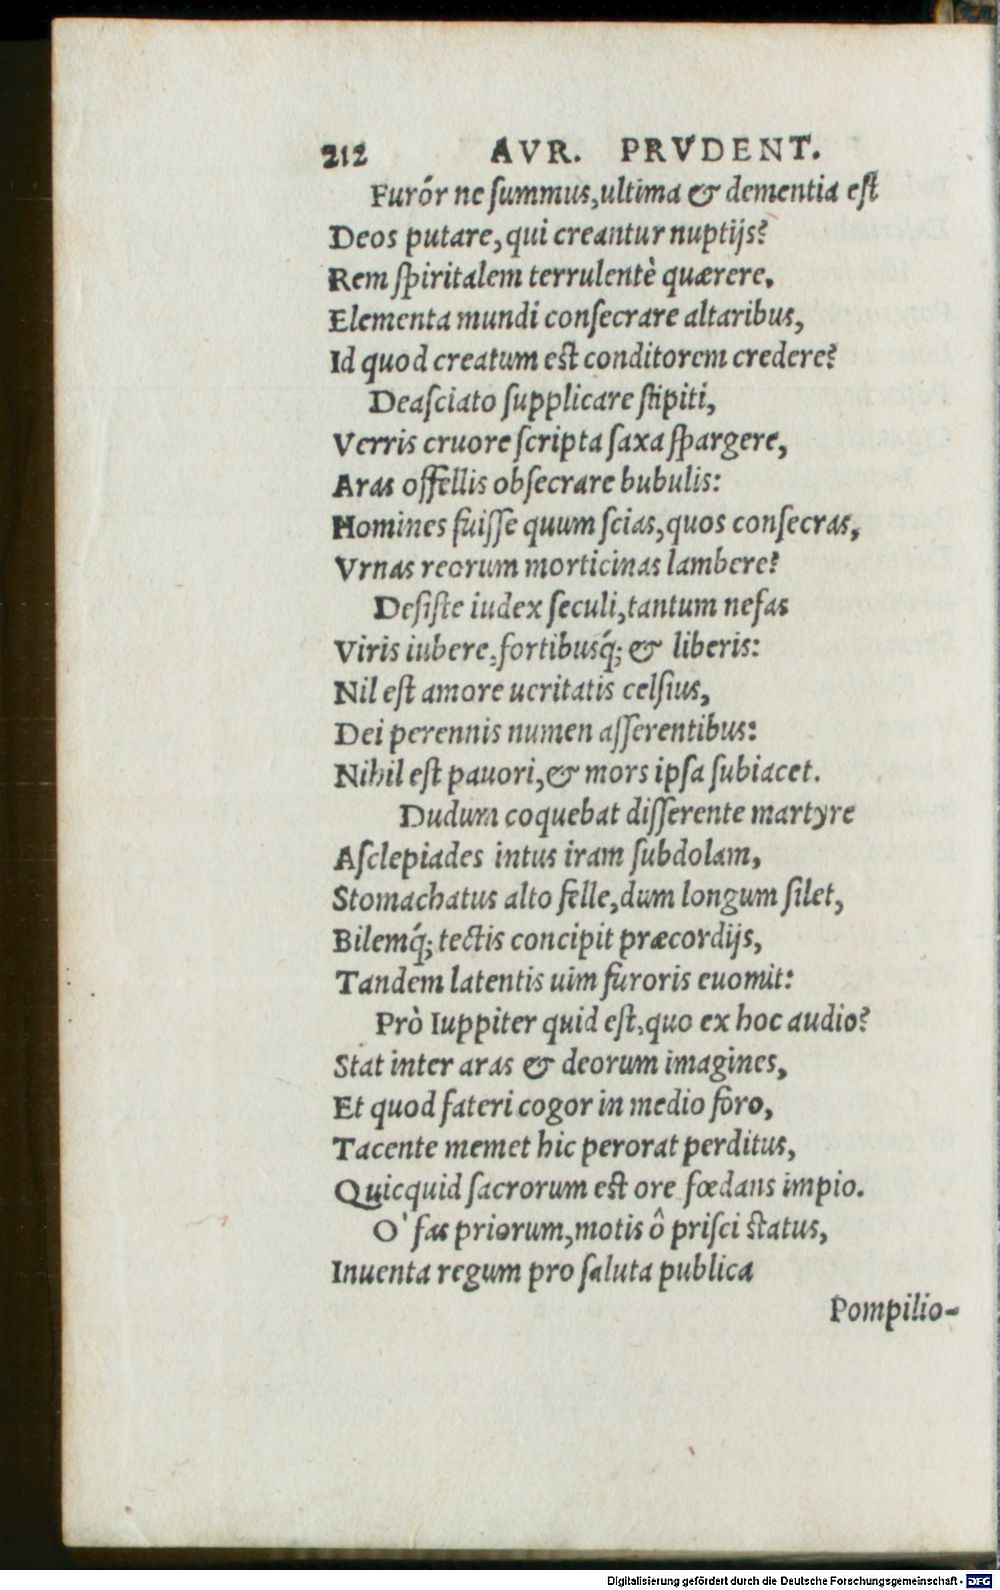 212 AVR. PRVDENT.
Furór ne ſummus,ultima & dementia eſt
Deos putare,qui creantur nuptijs?
Rem ſpiritalem terrulentè quærere,
Elementa mundi conſecrare altaribus,
Id quod creatum eſt conditorem credere?
Deaſciato ſupplicare ſtipiti,
Verris cruore ſcripta ſaxa ſpargere,
Aras offellis obſecrare bubulis:
Homines fuiſſe quum ſcias,quos conſecras,
Vrnas reorum morticinas lambere?
Deſiſte iudex ſeculi,tantum nefas
Viris iubere,fortibusq́; & liberis:
Nil eſt amore ueritatis celſius,
Dei perennis numen aſſerentibus:
Nihil eſt pauori,& mors ipſa ſubiacet.
Dudum coquebat diſſerente martyre
Aſclepiades intus iram ſubdolam,
Stomachatus alto felle,dum longum ſilet,
Bilemq́; tectis concipit præcordijs,
Tandem latentis uim furoris euomit:
Prò Iuppiter quid eſt,quo ex hoc audio?
Stat inter aras & deorum imagines,
Et quod fateri cogor in medio foro,
Tacente memet hic perorat perditus,
Quicquid ſacrorum eſt ore fœdans impio.
O' fas priorum,motis ô priſci ſtatus,
Inuenta regum pro ſaluta publica
Pompilio-
Digitalisierung gefördert durch die Deutsche Forschungsgemeinschaft - DFG